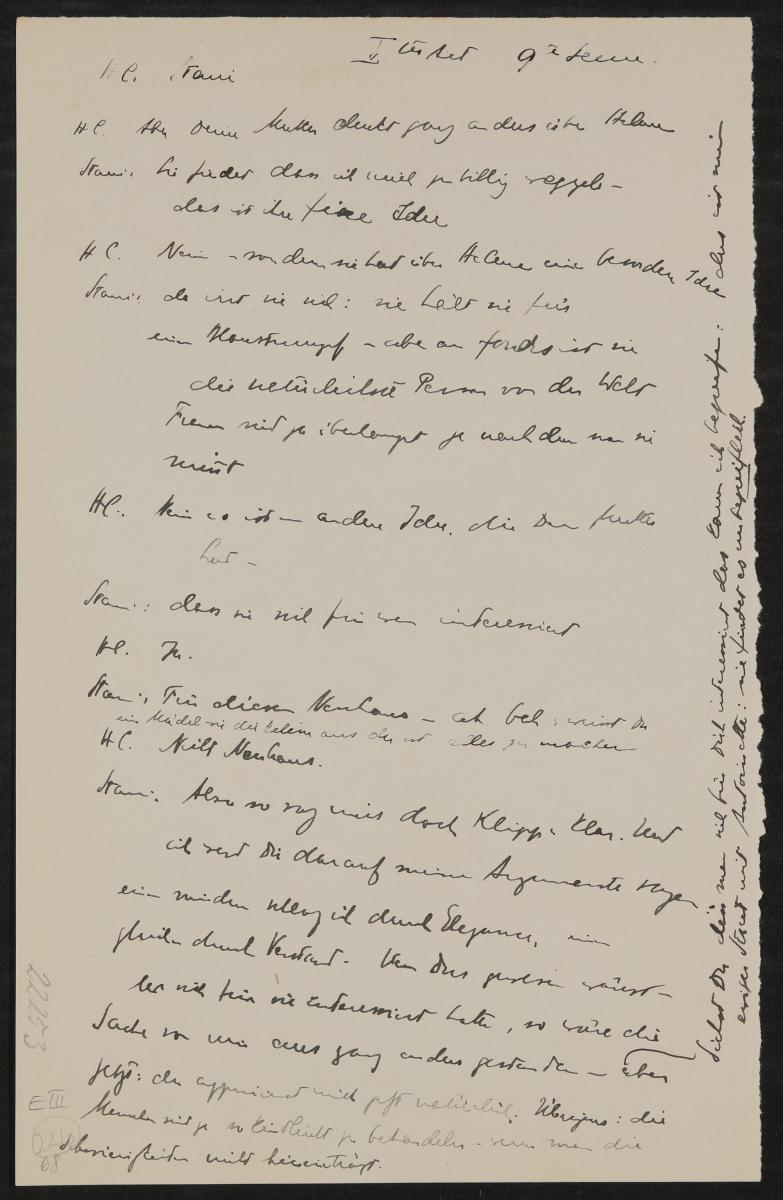 I ter Act 9te Scene.
HC. Stani
HC. Aber Deine Mutter denkt ganz anders über Helene
Stani: Sie findet dass ich mich zu billig weggebe –
das ist ihre fixe Idee
HC. Nein – sondern sie hat über Helene eine besondere Idee
Stani: da irrt sie sich: sie hält sie für
einen Blaustrumpf – aber au fonds ist sie
die natürlichste Person von der Welt
Frauen sind ja überhaupt je nachdem man sie
nimmt
HC. Nein es ist eine andere Idee, die Deine Mutter
hat –
Stani: dass sie sich für wen interessiert
HC. Ja.
Stani: Für diesen Neuhaus – ah bah: weisst Du
ein Mädel wie die Helene aus der ist alles zu machen
HC. Nicht Neuhaus.
Stani: Also so sag mirs doch klipp u. klar. Und
ich werd Dir darauf meine Argumente sagen
einen minderen schlag ich durch Eleganz, einen
gleichen durch Verstand. Wenn Dus gewesen wärest –
der sich für sie interessiert hätte, so wäre die
Sache von mir aus ganz anders gestanden – aber
jetzt: da approuvierst mich jetzt natürlich. Übrigens: die
Menschen sind ja so kindleicht zu behandeln – wenn man die
Schwierigkeiten nicht hineinträgt.
Siehst Du dass man sich für Dich interessiert das kann ich begreifen: das ist mein
ewiger Streit mit Antoinette: sie findet es unbegreiflich.
22253
E III
68